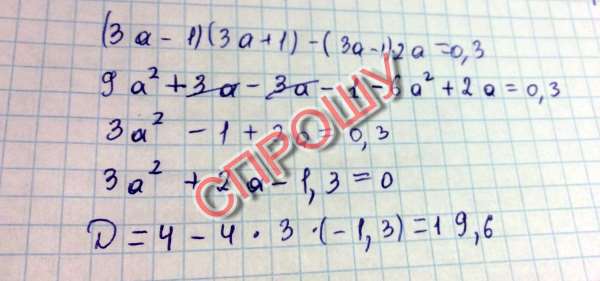 (3a-1)(3a+1)-(3a-1)2a=0,3
9a²+3a-3a-1-6a²+2a=0,3
3a²-1+2a=0,3
3a²+2a-1,3=0
D=4-4·3·(-1,3)=19,6
СПРОШУ